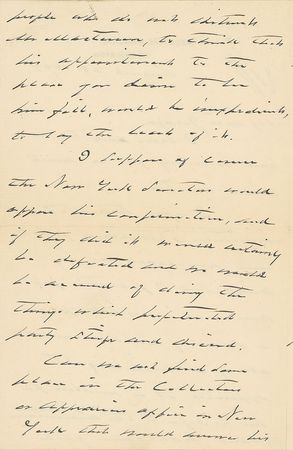 people who do not distrust
Mr Masterson, to think that
his appointment to the
place you desire to
him fill, would be inexpedient,
to say the least of it.
I suppose of course
the New York Senators would
oppose his confirmation, and
if they did it would certainly
be defeated and we would
be accused of doing the
things which perpetrated
party strife and discord.
Can we not find some
place in the Collectors
or appraisers office in New
York that would answer his